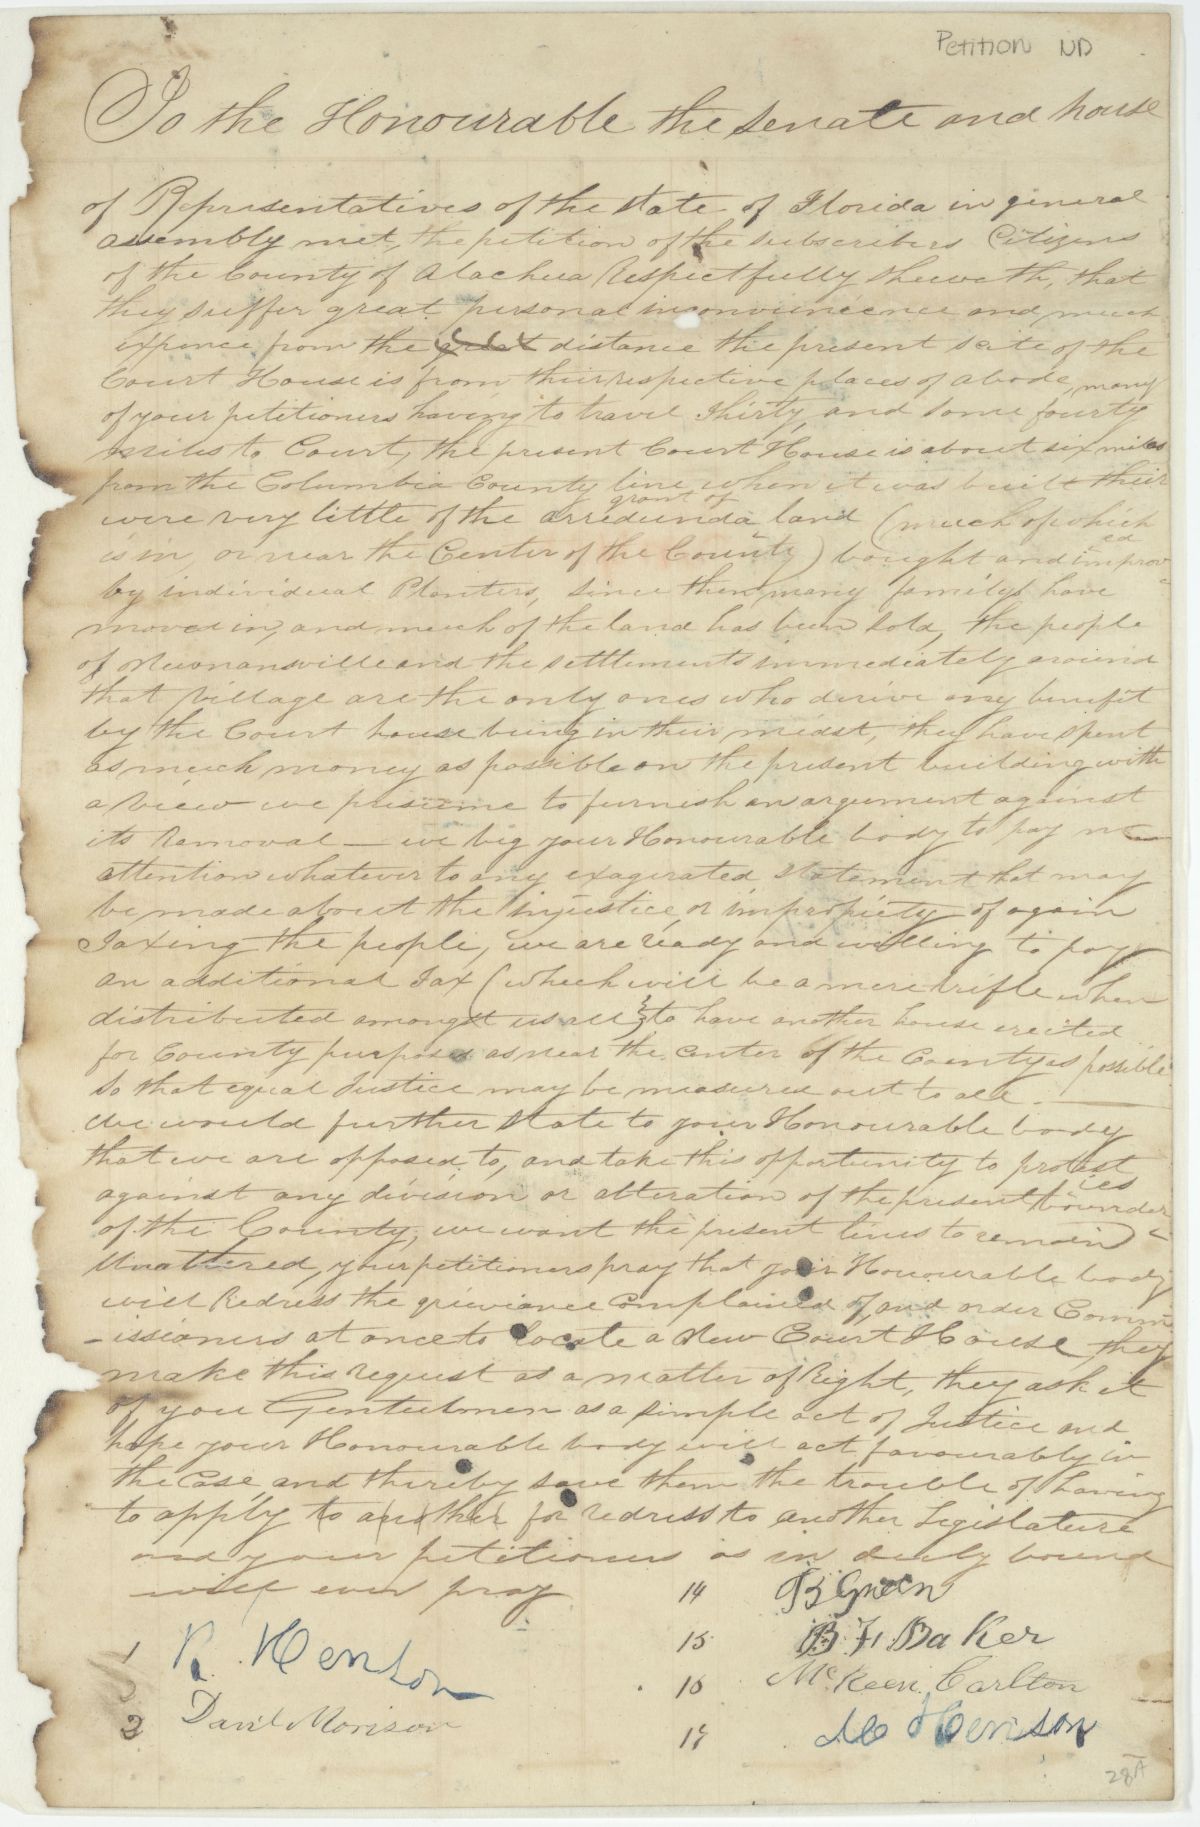 Petition ND
To the Honourable the Senate and house
of Representatives of the State of Florida in general
assembly met, the petition of the subscribers Citizens
of the County of Alachua Respectfully sheweth, that
they suffer great personal inconvinience and much
expence from the great distance the present scite of the
Court House is from their respective places of abode, many
of your petitioners having to travel Thirty, and some fourty
miles to Court, the present Court House is about six miles
from the Columbia County line, when it was built their
were very little of the arredunda grant of land (much of which
is in, or near the Center of the County) bought and improv-ed
by individual Planters, since then many familys have
moved in, and much of the land has been sold, the people
of Newnansville and the settlements immediately around
that village are the only ones who derive any benefit
by the Court house being in their midst, they have spent
as much money as possible on the present building with
a view we presume to furnish an argument against
its Removal — we beg your Honourable body to pay no
attention whatever to any exagerated statement that may
be made about the injustice or impropiety of again
Taxing the people, we are ready and willing to pay
an additional Tax (which will be a mere trifle when
distributed amongst us all) to have another house erected
for County purposes as near the center of the County as possible
so that equal Justice may be measured out to all. —
We would further State to your Honourable body
that we are opposed to, and take this opportunity to protest
against any division or alteration of the present bounder-ies
of the County; we want the present lines to remain
Unaltered, your petitioners pray that your Honourable body
will Redress the grieviance complained of, and order Comm
-issioners at once to locate a New Court House, they
make this request as a matter of Right, they ask it
of you Gentlelmen as a simple act of Justice and
hope your Honourable body will act favourably in
the Case, and thereby save them the trouble of having
to apply to another for redress to another Legislature
and your petitioners as in duly bound
will ever pray
1 R. Henson
2 David Morison
14 B Green
15 B. F. Baker
16 McKeen Carlton
17 M Henison
28A